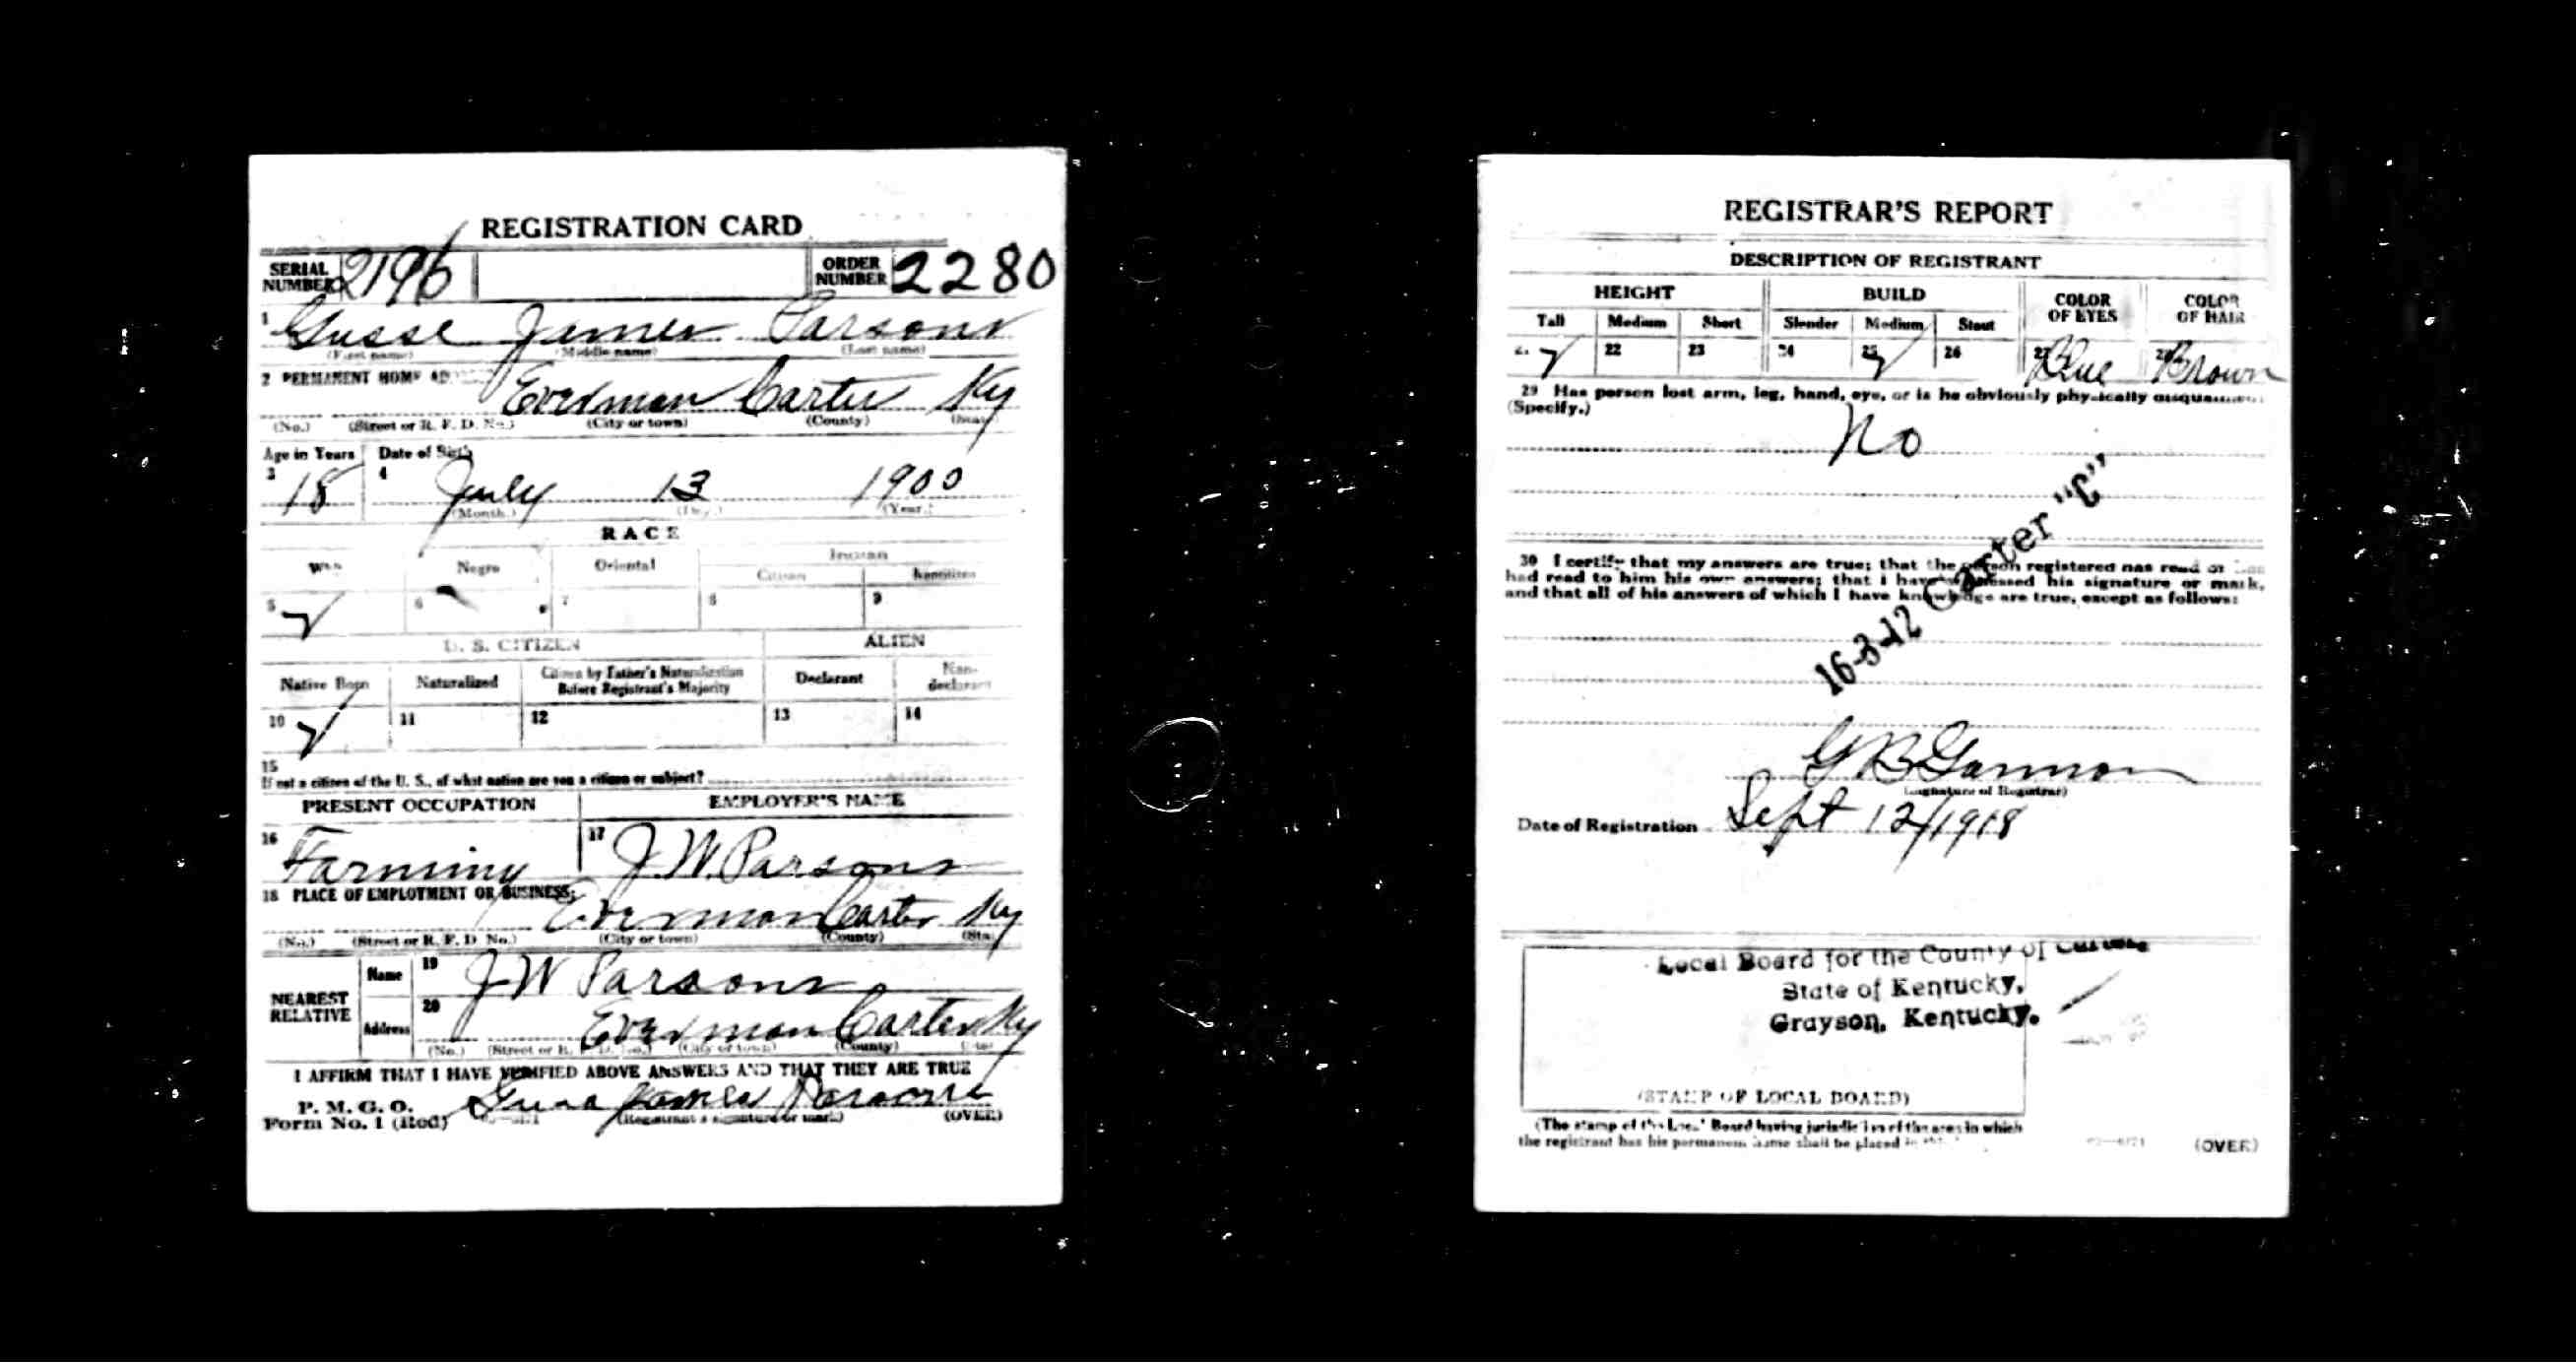 REGISTRATION CARD
SERIAL NUMBER 2196 ORDER NUMBER 2280
1 Gusse James Parsons
(First name) (Middle name) (Last name)
2 PERMANENT HOME
Everman Carter Ky
(No.) (Street or R. F. D. No.) (City or town) (County) (State)
Age in Years Date of Birth
3 18 4 July 13 1900
(Month.) (Day.) (Year.)
RACE
Negro Oriental Indian
Citizen Noncitizen
5 ✓ 6 7 8 9
U. S. CITIZEN ALIEN
Native Born Naturalized Citizen by Father's Naturalization Before Registrant's Majority Declarant Non-declarant
10 ✓ 11 12 13 14
15
If not a citizen of the U. S., of what nation are you a citizen or subject?
PRESENT OCCUPATION EMPLOYER'S NAME
16 Farming 17 J. W. Parsons
18 PLACE OF EMPLOYMENT OR BUSINESS:
Everman Carter Ky
(No.) (Street or R. F. D. No.) (City or town) (County)
NEAREST RELATIVE Name 19 J W Parsons
Address 20 Everman Carter Ky
(No.) (City or town) (County)
I AFFIRM THAT I HAVE VERIFIED ABOVE ANSWERS AND THAT THEY ARE TRUE
P. M. G. O.
Form No. 1 (Red) James Parsons
(Registrant's signature or mark) (OVER)
REGISTRAR'S REPORT
DESCRIPTION OF REGISTRANT
HEIGHT BUILD COLOR OF EYES COLOR OF HAIR
Tall Medium Short Slender Medium Stout
✓ 22 23 24 25 ✓ 26 Blue Brown
29 Has person lost arm, leg, hand, eye, or is he obviously physically
(Specify.)
No
16-3-12 Carter "C"
30 I certify that my answers are true; that the person registered has read or has
had read to him his own answers; that I have witnessed his signature or mark,
and that all of his answers of which I have knowledge are true, except as follows:
G B Gannon
(Signature of Registrar)
Date of Registration Sept 12/1918
Local Board for the County of
State of Kentucky,
Grayson, Kentucky.
(STAMP OF LOCAL BOARD)
(The stamp of the Local Board having jurisdiction of the area in which
the registrant has his permanent home shall be placed in
(OVER)